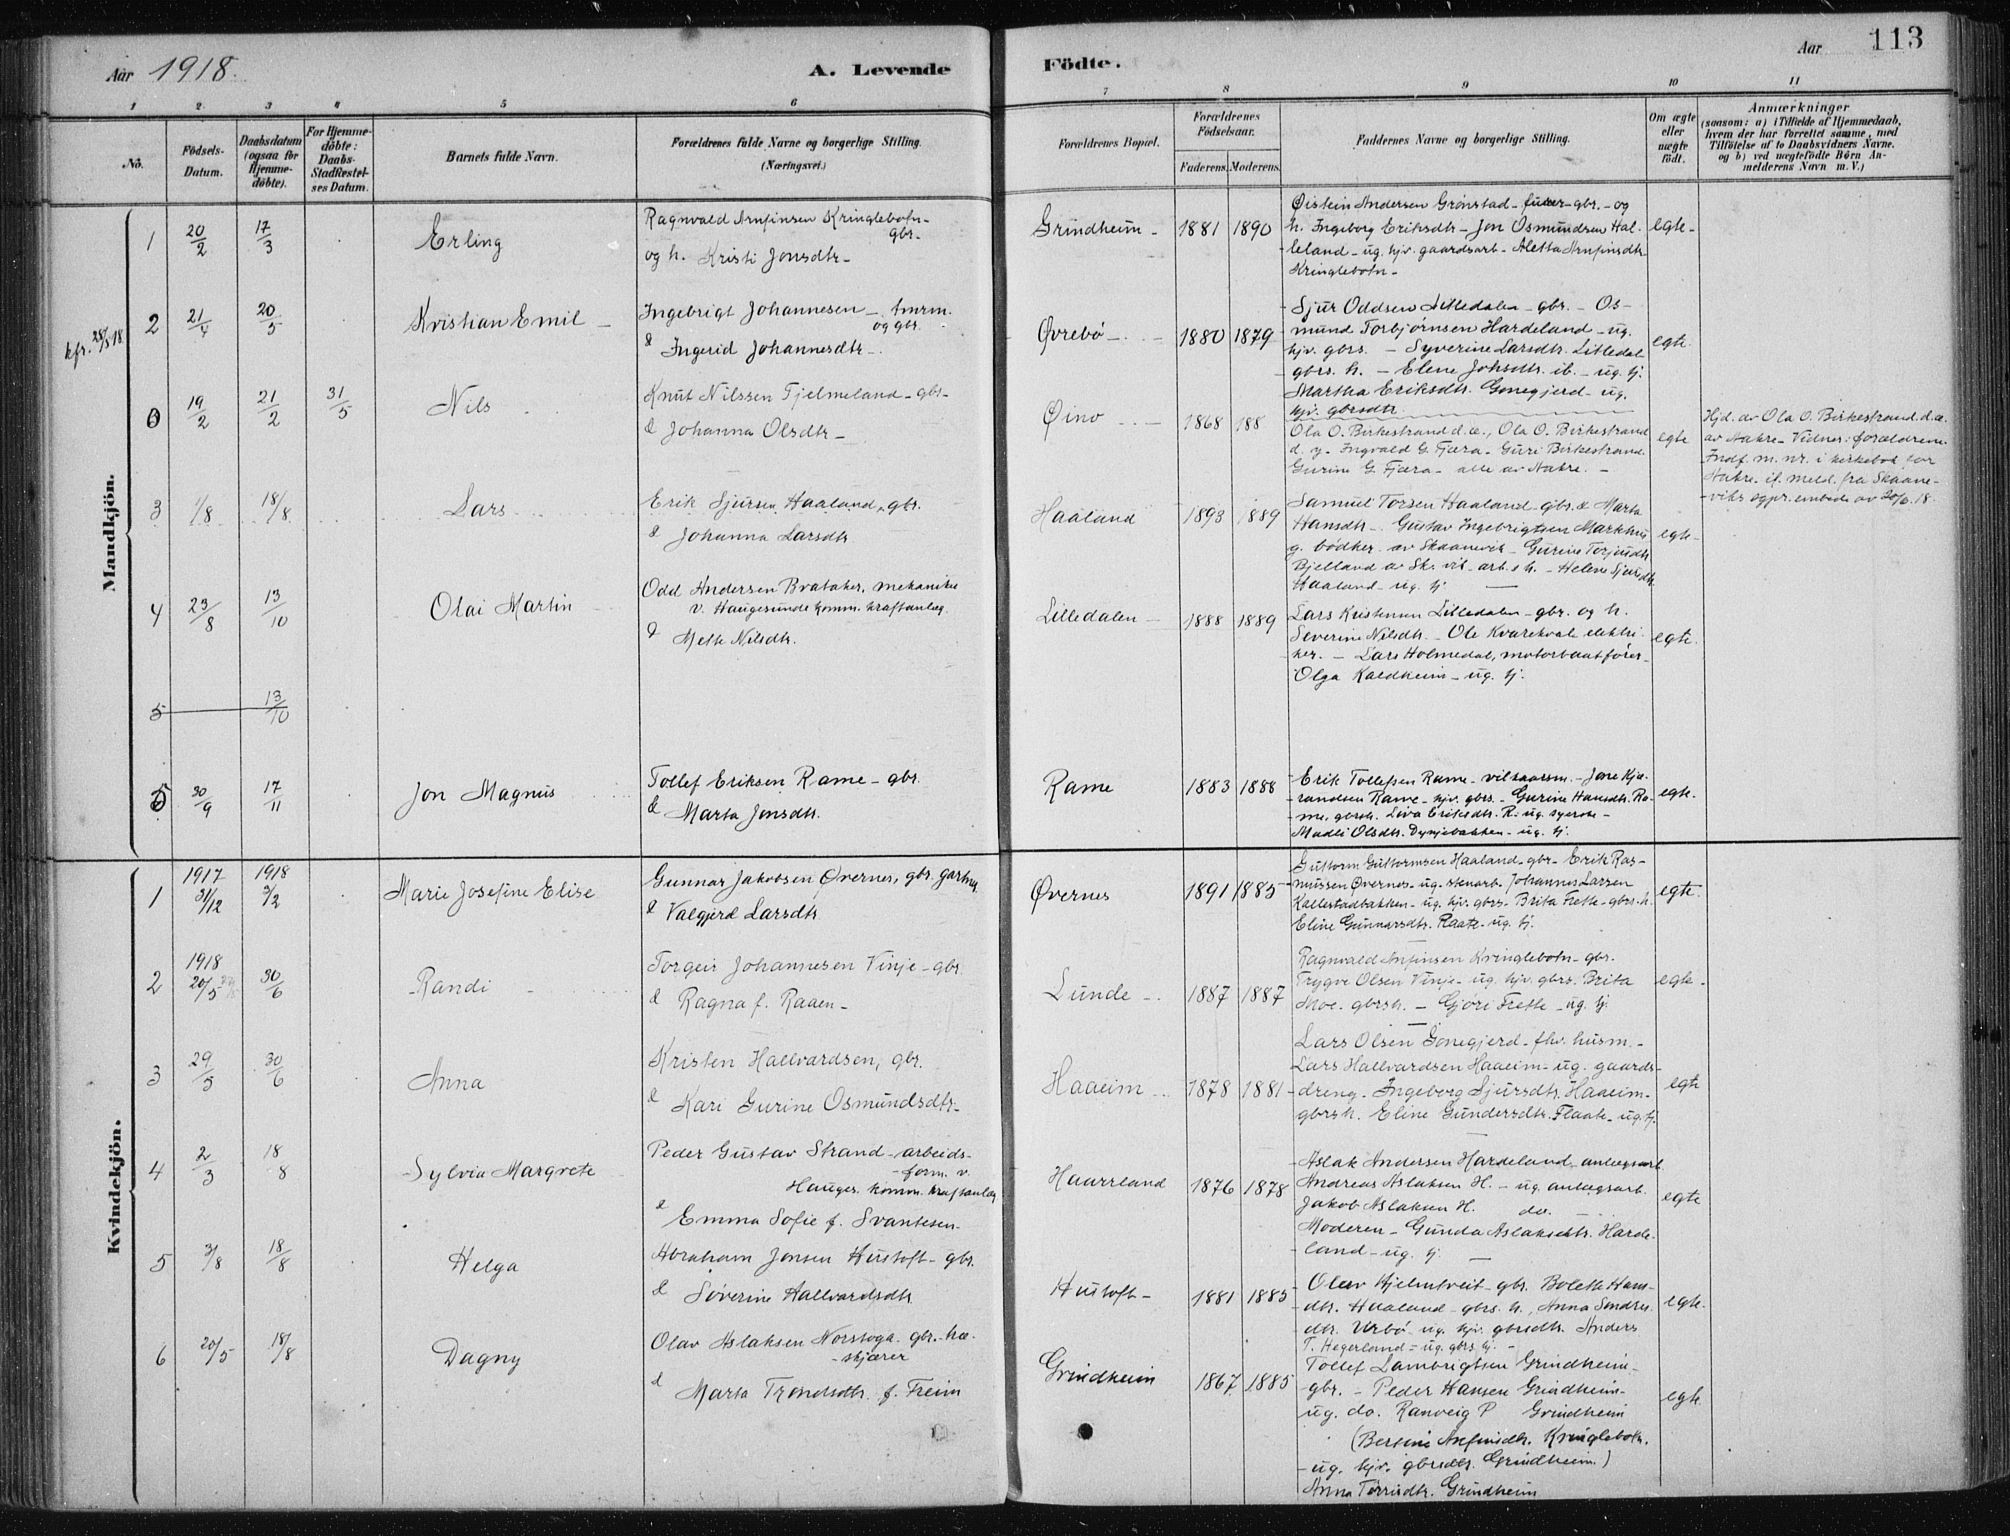 Aar 1918.
A. Levende
Födte.
Aar
113
1 2 3 4 5 6 7 8 9 10 11
No.
Födsels-
Datum.
Daabsdatum
(ogsaa for
Hjemme-
döbte).
For Hjemme-
döbte:
Daabs-
Stadfæstel-
ses Datum.
Barnets fulde Navn.
Forældrenes fulde Navne og borgerlige Stilling.
(Næringsvei.)
Forældrenes Bopæl.
Forældrenes
Födselsaar.
Faderens. Moderens.
Faddernes Navne og borgerlige Stilling.
Om ægte
eller
uægte
födt.
Anmærkninger
(saasom: a) i Tilfælde af Hjemmedaab,
hvem der har forrettet samme, med
Tilföielse af to Daabsvidners Navne.
og b) ved uægtefödte Börn An-
melderens Navn m. V.)
Mandkjön.
1 20/2 17/3 Erling
Ragnvald Arnfinsen Kringlebotn-
gbr.
og h. Kristi Jonsdtr-
Grindheim - 1881 1890
Øistein Andersen Grönstad - gbr. - og
h. Ingeborg Eriksdtr - Jon Osmundsen Hal-
leland - ug. hjv. gaardsarb - Aletta Arnfinsdtr
Kringlebotn -
egte -
kfr. 28/5 18.
2 21/4 20/5 Kristian Emil -
Ingebrigt Johannesen - tmrm.
og gbr.
& Ingerid Johannesdtr -
Øvrebö - 1880 1879
Sjur Oddsen Lilledalen - gbr. - Os-
mund Torbjørnsen Hardeland - ug.
hjv. gbrs. - Syverine Larsdtr. Lilledal-
gbrs. h. - Elene Johsdtr. ib. - ug. tj.
Martha Eriksdtr. Gonegjerd - ug.
hjv. gbrsdtr.
egte
0 19/2 21/2 31/5 Nils
Knut Nilssen Fjelmeland - gbr-
& Johanna Olsdtr -
Øino - 1868 188
Ola O. Birkestrand d. æ., Ola O. Birkestrand
d. y. - Ingvald G. Fjæra - Guri Birkestrand.
Gurine G. Fjæra - alle av Aakre. -
egte
Hjd. av Ola O. Birkestrand. d. æ.
av Aakre - Vidner: forældrene.
Indf. m. nr. i kirkebok for
Aakre if. meld. fra Skaane-
viks sgpr. embede av 20/6. 18.
3 1/8 18/8 Lars
Erik Sjursen Haaland, gbr.
& Johanna Larsdtr.
Haaland 1893 1889
Samuel Torsen Haaland - gbr. & Marta
Hansdtr - Gustav Ingebrigtsen Markhus
g. bödker av Skaanevik - Gurine Torjusdtr
Bjelland av Sk. vik - arb. s h. - Helene Sjursdtr.
Haaland - ug. tj
egte -
4 23/8 13/10 Olai Martin
Odd Andersen Brataker, mekanike
v. Haugesunds komm. kraftanlæg.
& Mette Nilsdtr.
Lilledalen - 1888 1889
Lars Kristensen Lilledalen - gbr. og h.
Severine Nilsdtr. - Ole Kvarekval elektri-
ker. - Lars Holmedal, motorbaatfører-
Olga Kaldheim - ug. tj.
egte.
5 13/10
5 30/9 17/11 Jon Magnus
Tollef Eriksen Rame - gbr.
& Marta Jonsdtr.
Rame 1883 1888
Erik Tollefsen Rame - vilkaarsm. - Jone Kja-
randsen Rame - hjv. gbrs. - Gurine Hansdtr. Ra-
me, gbrsh. Liva Eriksdtr. R. - ug. syerske -
Madli Olsdtr. Dynjebakken - ug. tj.
egte.
Kvindekjön.
1 1917 31/12 1918 3/2 Marie Josefine Elise
Gunnar Jakobsen Øvernes, gbr. gartner
& Valgjerd Larsdtr.
Øvernes 1891 1885
Guttorm Guttormsen Haaland - gbr - Erik Ras-
mussen Øvernes - ug. stenarb. Johannes Larsen
Kallestadbakken - ug. hjv. gbrs - Brita Frette - gbrs. h.
Eline Gunnarsdtr. Flaate - ug. tj.
egte.
2 1918 20/5 30/6 Randi
Torgeir Johannesen Vinje - gbr.
& Ragna f. Raaen -
Lunde - 1887 1887
Ragnvald Anfinsen Kringlebotn - gbr.
Trygve Olsen Vinje - ug. hjv. gbrs. Brita
Moe. gbrsh. - Gjöri Frette - ug. tj.
egte -
3 29/5 30/6 Anna
Kristen Hallvardsen, gbr.
& Kari Gurine Osmundsdtr -
Haaeim 1878 1881
Lars Olsen Gonegjerd - fhv. husm. -
Lars Hallvardsen Haaeim - ug. gaards-
dreng - Ingeborg Sjursdtr. Haaeim -
gbrsh. Eline Gundersdtr. Flaate - ug. tj.
egte
4 2/3 18/8 Sylvia Margrete
Peder Gustav Strand - arbeids-
form. v.
Hauges. komm. kraftanlæg
& Emma Sofie f. Svantesen -
Haarrland 1876 1878
Aslak Andersen Hardeland - anlægsarb.
Andreas Aslaksen H. - ug. anlægsarb.
Jakob Aslaksen H. do.
Moderen - Gunda Aslaksdtr. Harde-
land - ug. tj.
egte
5 3/8 18/8 Helga
Abraham Jonsen Hustoft - gbr.
& Söverine Hallvardsdtr.
Hustoft - 1881 1885
Olav Hjelmtveit - gbr. Bolette Hans-
dtr. Haaland - gbrs. h., Anna Sondres
dtr. Urbö - ug. hjv. gbrsdtr. Anders
T. Hegerland - ug. gbrs. tj. -
egte.
6 20/5 18/8 Dagny
Olav Aslaksen Norstoga. gbr. - hæ-
skjærer
& Marta Trondsdtr. f. Freim
Grindheim 1867 1885
Tollef Lambrigtsen Grindheim -
gbr. - Peder Hansen Grindheim -
ug. do. Ranveig P Grindheim
(Bertine Anfinsdtr. Kringlebotn.
- ug. hjv. gbrsdtr. Grindheim.)
Anna Torrisdtr. Grindheim
egte